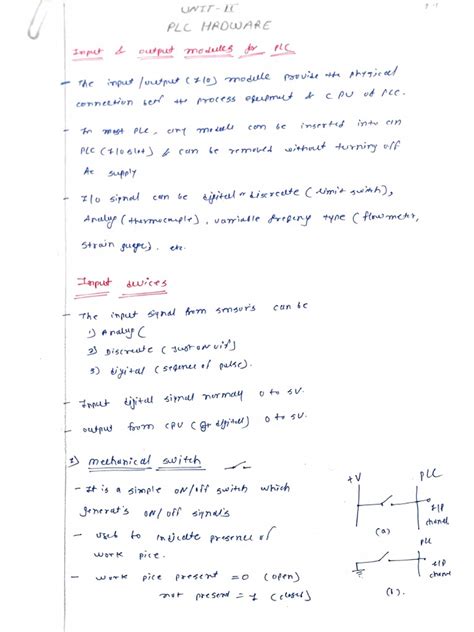 UNIT-II
PLC HADWARE
Input & output modules for PLC
- The input/output (I/o) module provide the physical
connection betn the process equipment & CPU of PLC.
- In most PLC, any module can be inserted into an
PLC (I/o slot) & can be removed without turning off
Ac supply
- I/o signal can be digital or discreate (limit switch),
Analog (thermocouple), variable freqency type (flowmeter,
strain guage). etc.
Input devices
- The input signal from sensors can be
1) Analog (
2) Discreate (Just on off)
3) Digital (seqence of pulse).
- Input digital signal normaly 0 to 5V.
- output from CPU (digital) 0 to 5V.
1) mechanical switch
- It is a simple ON/off switch which
generat's ON/off signal's
- used to indicate presence of
work pice.
- work pice present = 0 (open)
not present = 1 (closed)
+V
PLC
I/P
channel
(a)
PLC
I/P
channel
(b).